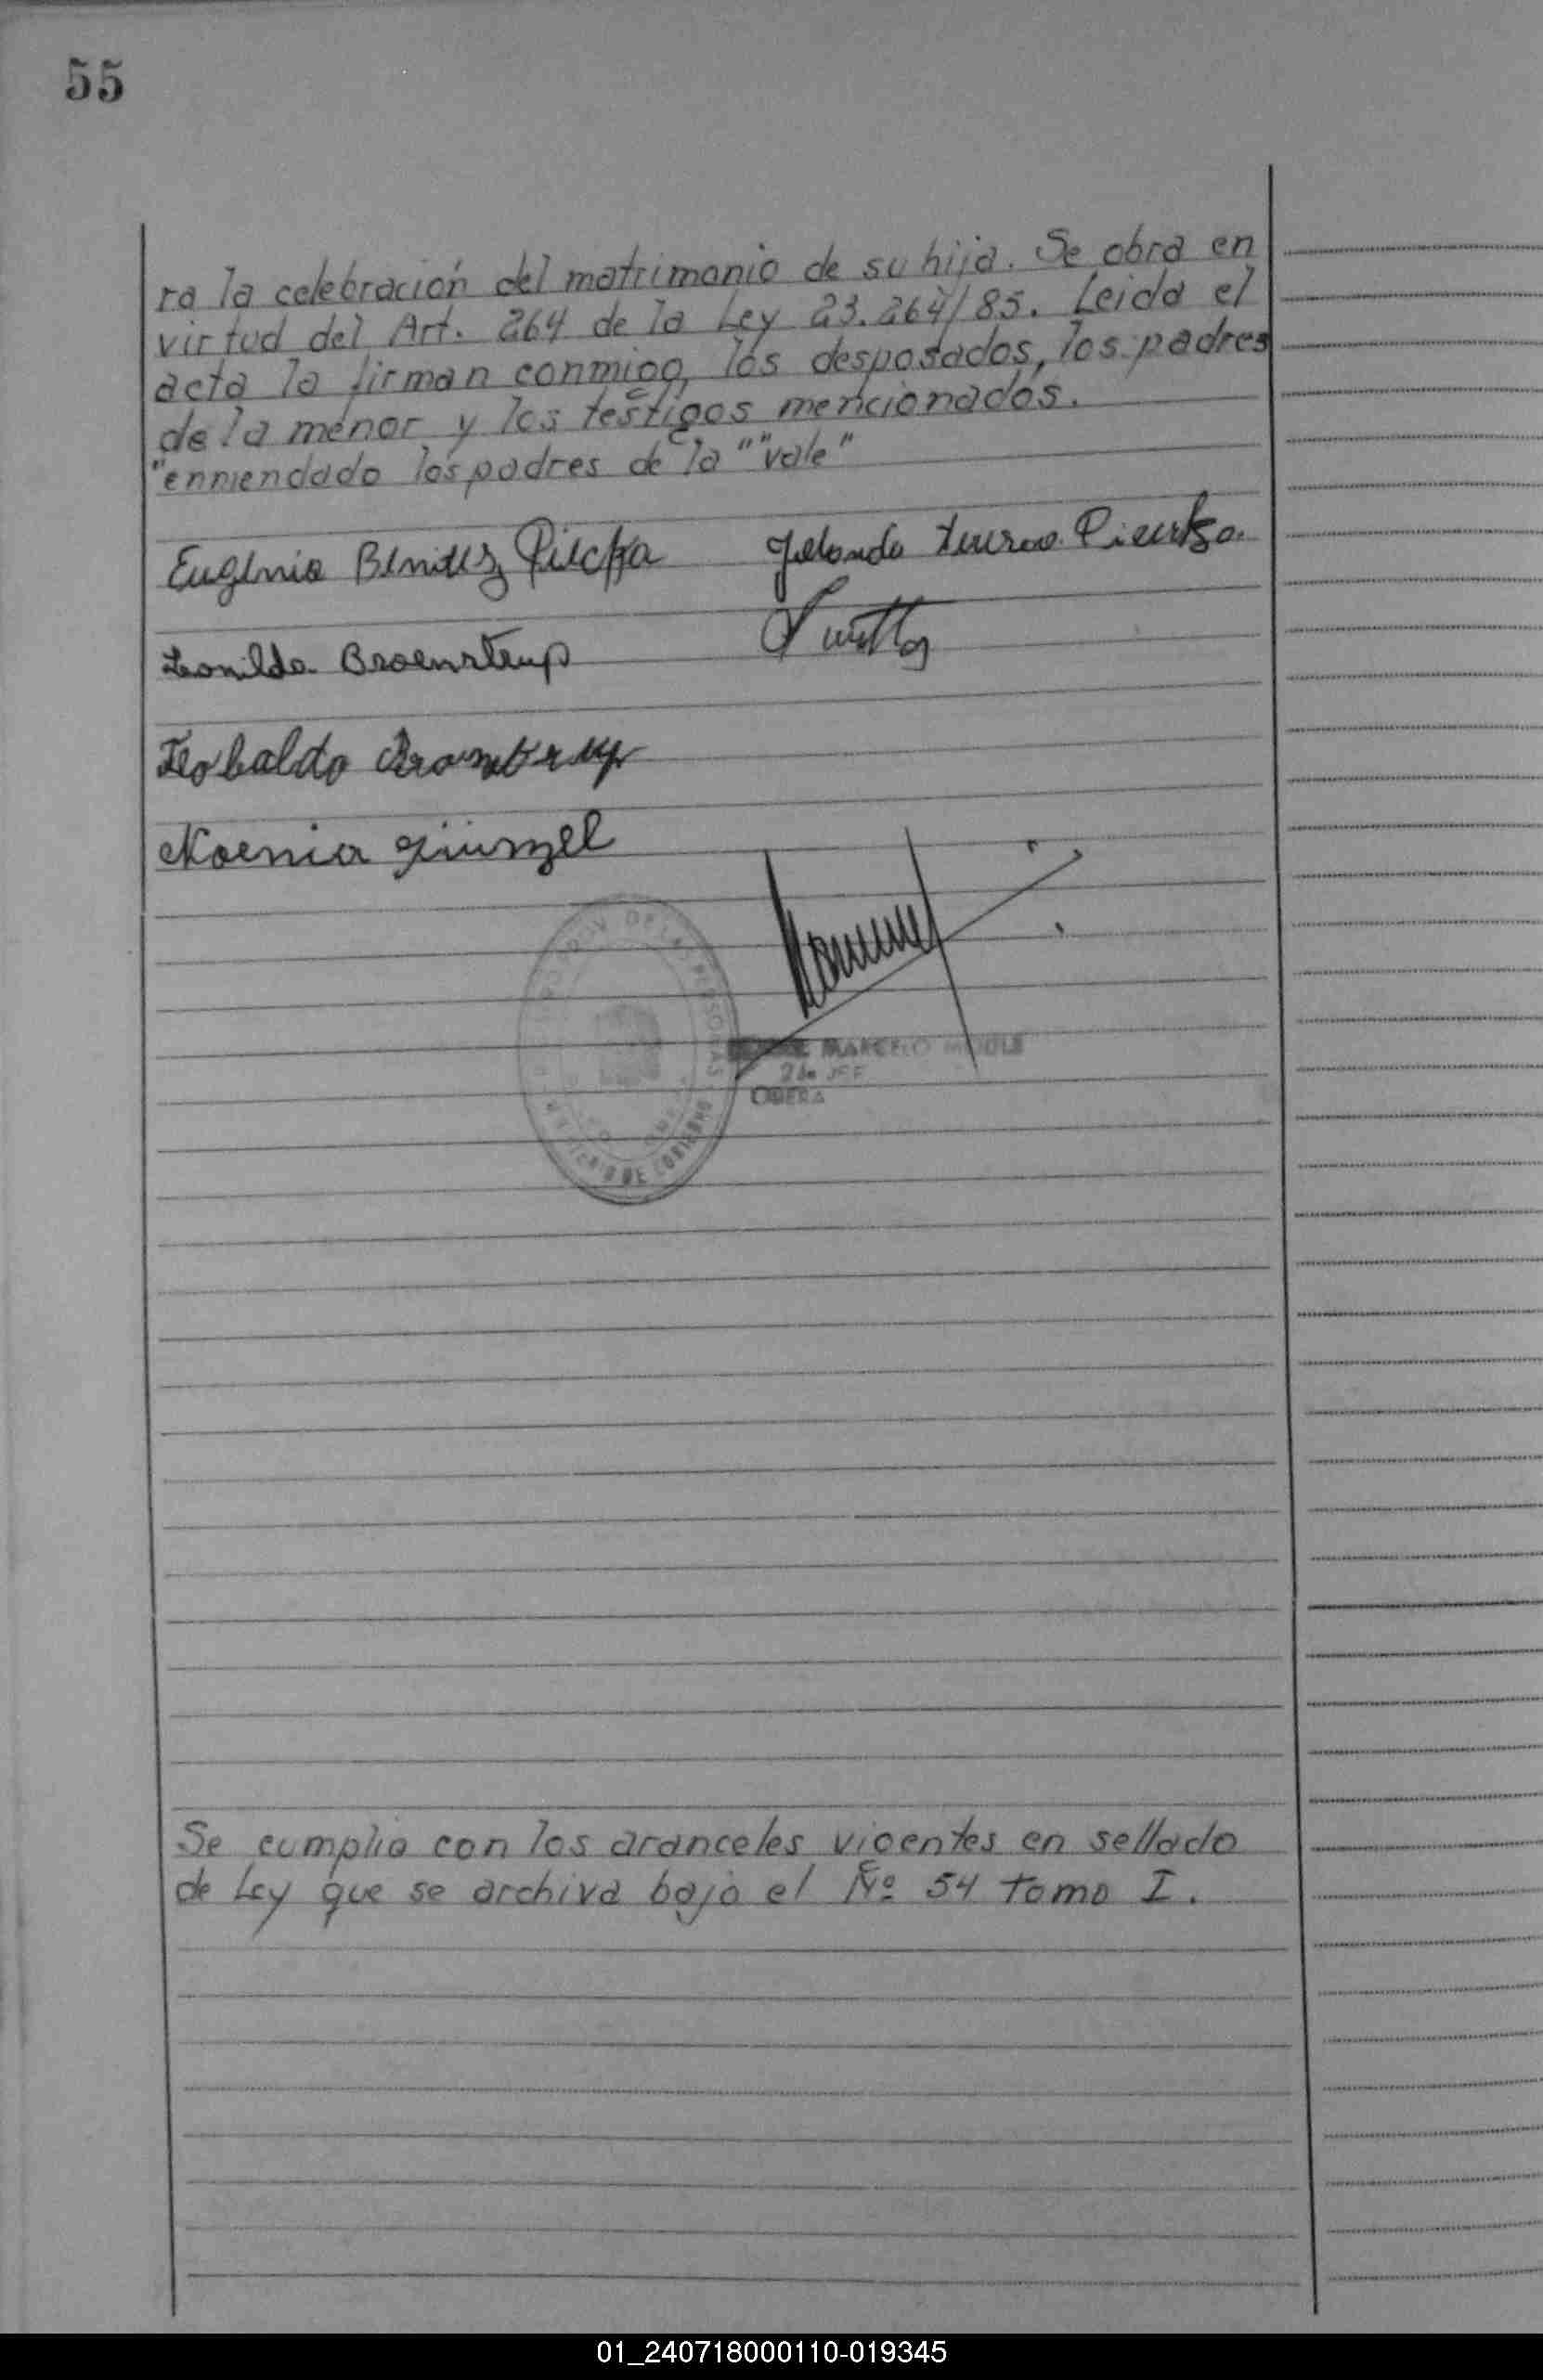 55
ra la celebración del matrimonio de su hija. Se obra en
virtud del Art. 264 de la Ley 23.264/85. Leida el
acta la firman conmigo, los desposados, los padres
de la menor y los testigos mencionados.
"enmendado los padres de la" "vale"
Eugenia Benitez
Leonilda Broenstrup
Teobaldo
Noemia
MARCELO
OBERA
DE LAS PERSONAS
MINISTERIO DE GOBIERNO
Se cumplio con los aranceles vigentes en sellado
de Ley que se archiva bajo el Nº 54 tomo I.
01_240718000110-019345